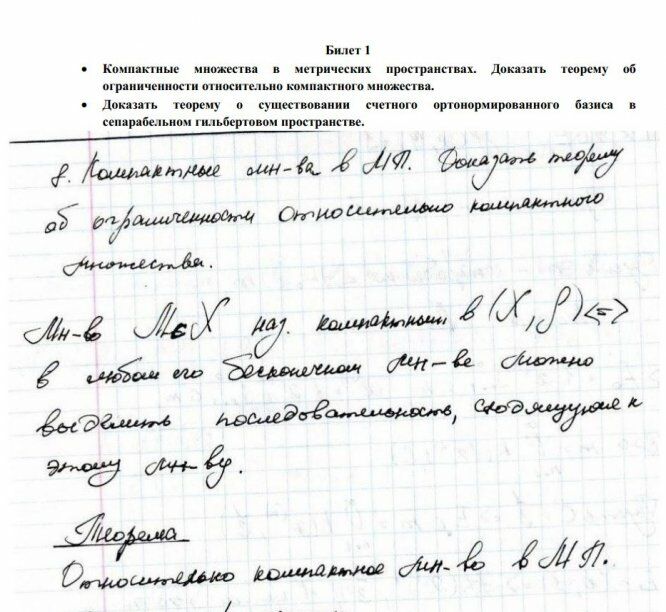 Билет 1
• Компактные множества в метрических пространствах. Доказать теорему об
ограниченности относительно компактного множества.
• Доказать теорему о существовании счетного ортонормированного базиса в
сепарабельном гильбертовом пространстве.
8. Компактные мн-ва в МП. Доказать теорему
об ограниченности относительно компактного
множества.
Мн-во M⊂X наз. компактным в (X, ρ) <=>
в любом его бесконечном мн-ве можно
выделить последовательность, сходящуюся к
этому мн-ву.
Теорема
Относительно компактное мн-во в МП.